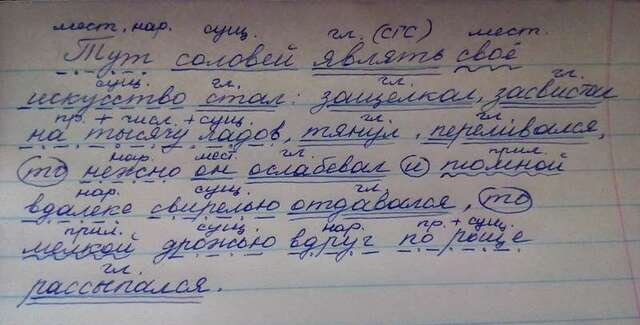 мест. нар. сущ. гл. (СГС) мест.
Тут соловей являть своё
сущ. гл. гл. гл.
искусство стал: защёлкал, засвистал
пр. + числ. + сущ. гл. гл.
на тысячу ладов, тянул, переливался,
нар. мест. гл. прил.
то нежно он ослабевал и томной
нар. сущ. гл.
вдалеке свирелью отдавался, то
прил. сущ. нар. пр. + сущ.
мелкой дрожью вдруг по роще
гл.
рассыпался.